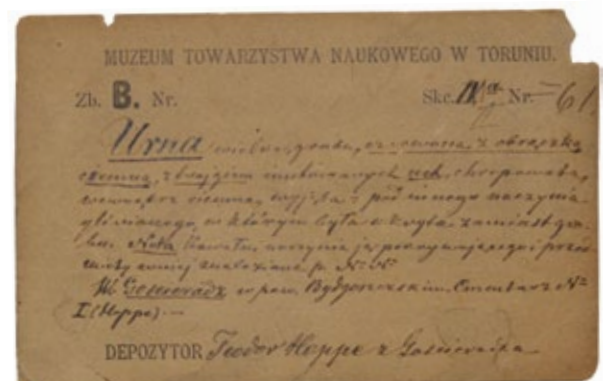 MUZEUM TOWARZYSTWA NAUKOWEGO W TORUNIU.
Zb. B. Nr. Skc. Nr. 61
Urna wielka, gruba, czerwona, z obrączką
ciemną, z dwojgiem uch, chropowata,
wewnątrz ciemna, wyjęta z pod innego naczynia
glinianego, w którym była zamiast gro-
bu. Nota naczynia ją pokrywającego i przed-
mioty w niej znalezione p. Nr. Nr.
W Gościeradz w pow. Bydgoskim. Cmentarz Nr.
I (Hoppe). —
DEPOZYTOR Teodor Hoppe z